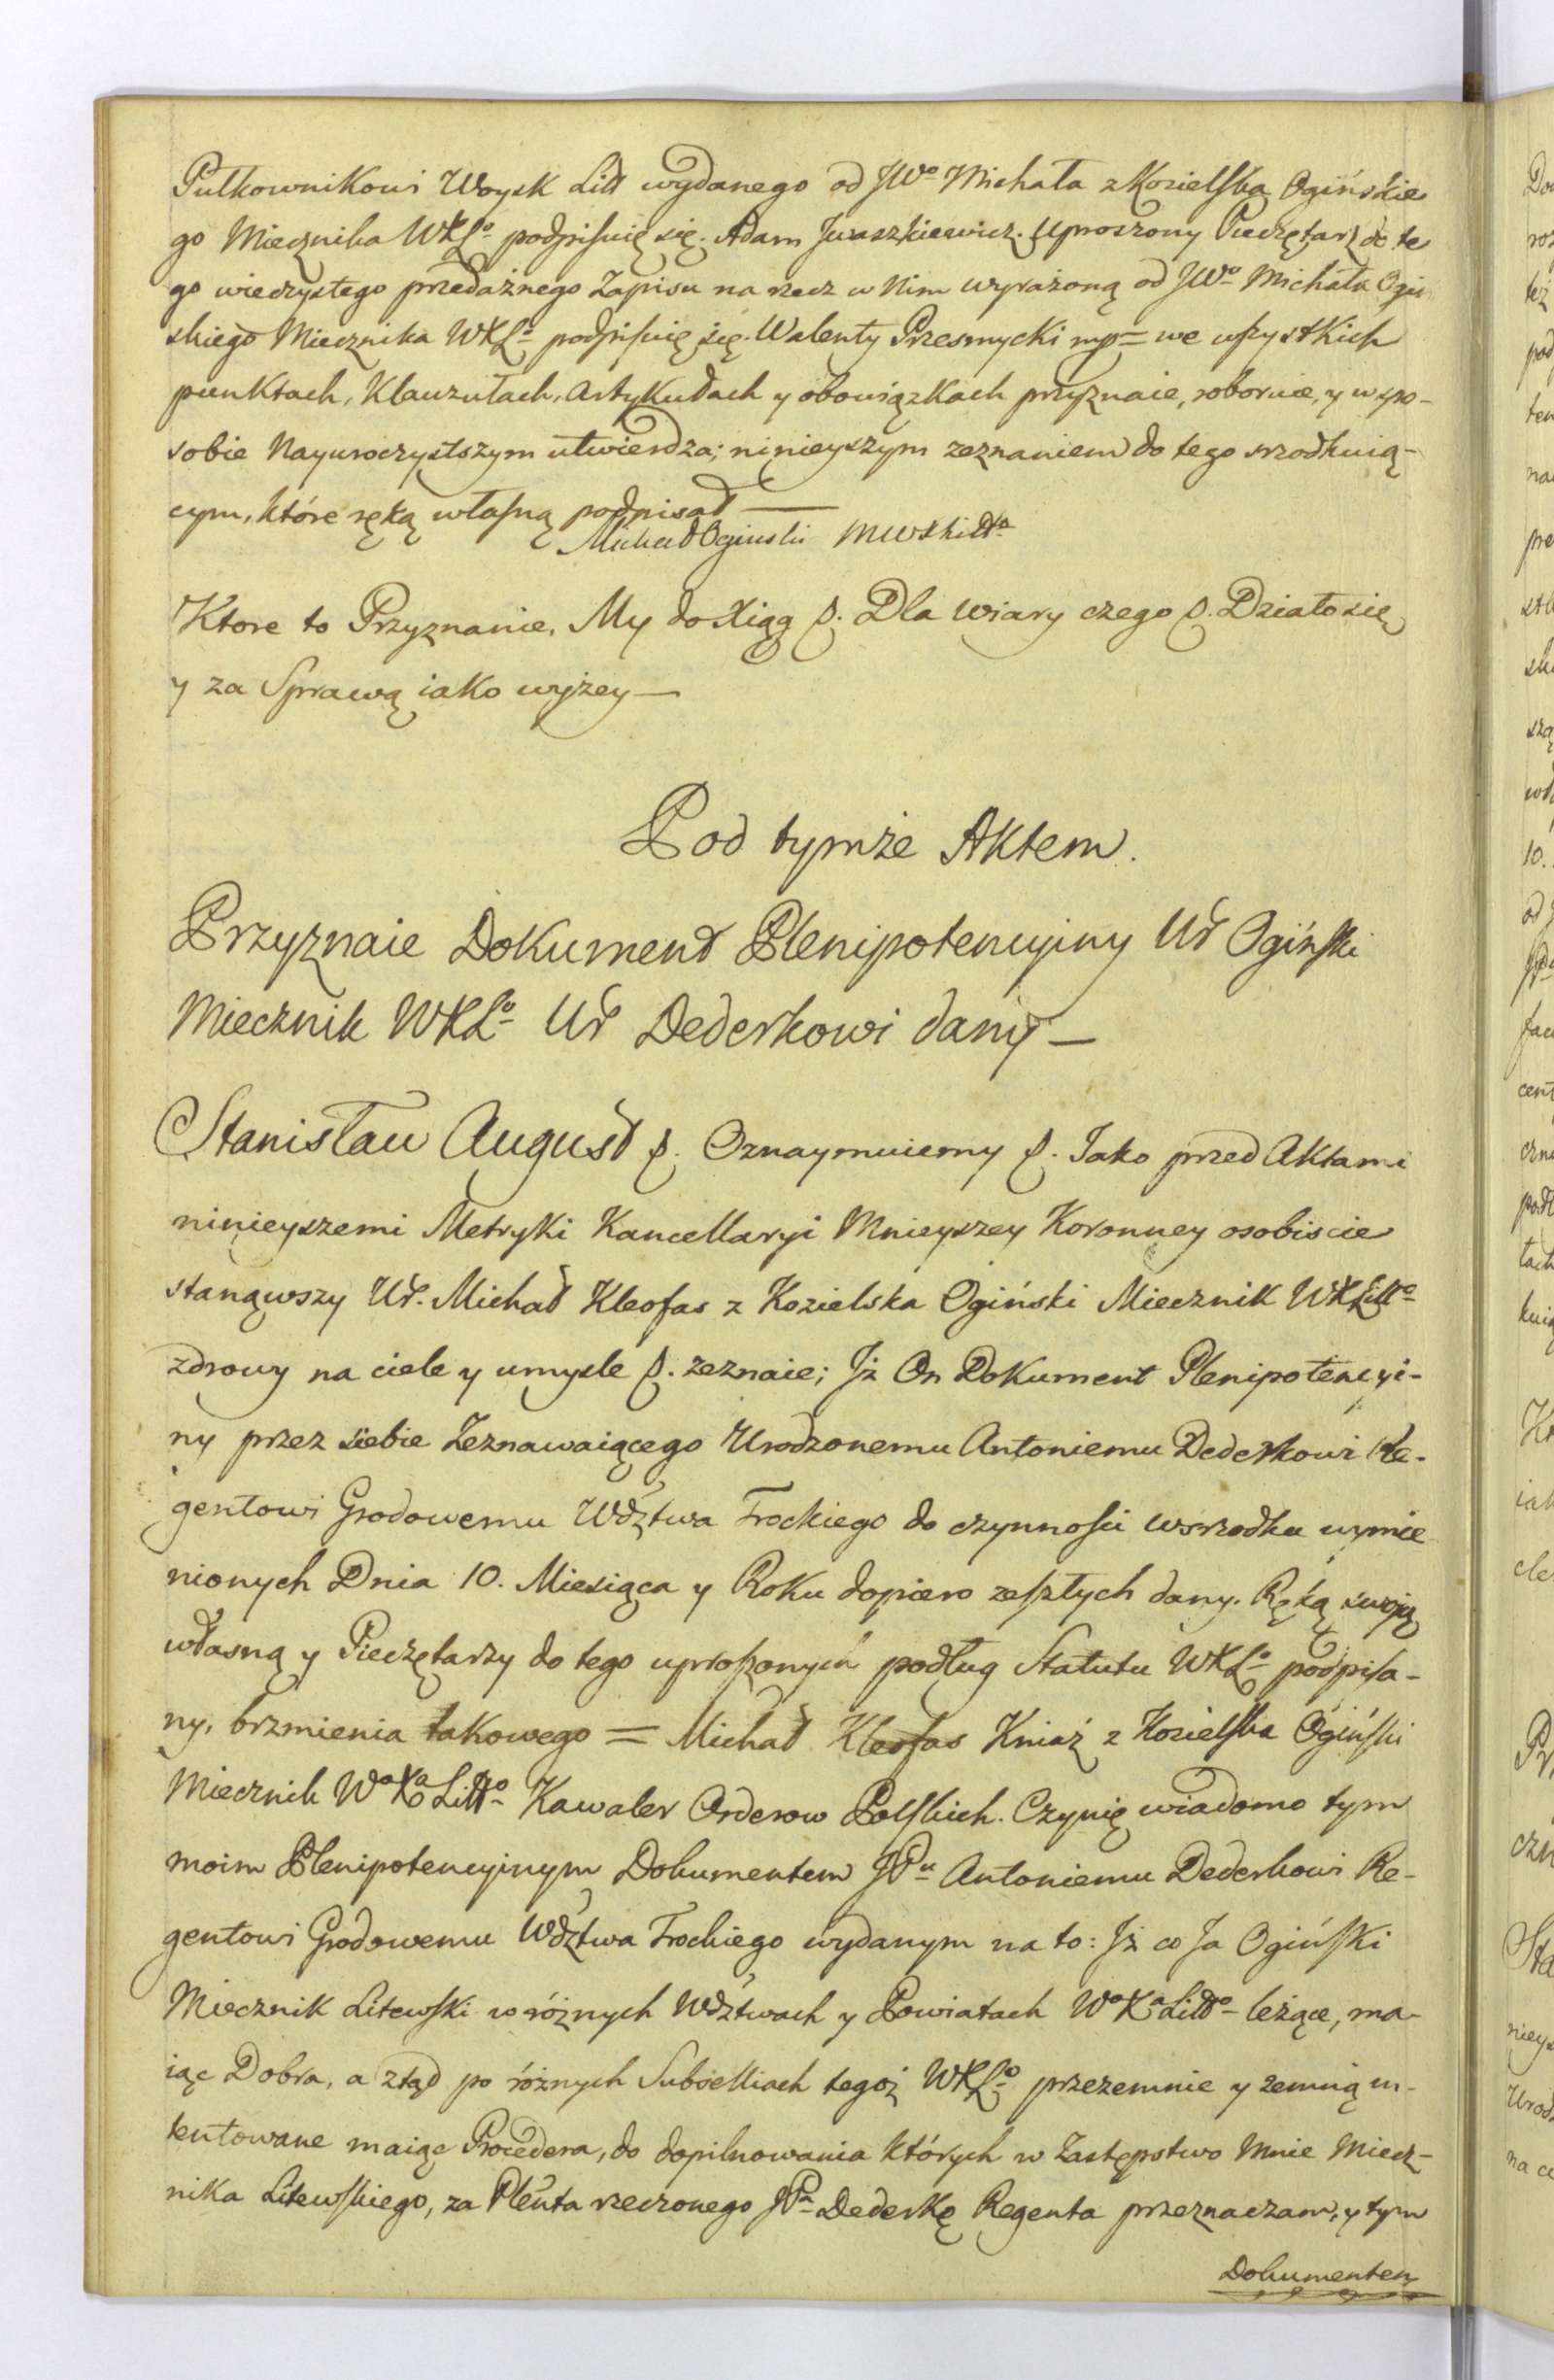 Pułkownikowi Woysk Litt wydanego od JWo Michała z Kozielska Ogińskie
go Miecznika WXLo podpisuię się. Adam Iwaszkiewicz. Uproszony Pieczętarz do te
go wieczystego przedażnego Zapisu na rzecz w Nim wyrażoną od JWo Michała Ogiń
skiego Miecznika WXLo podpisuię się. Walenty Przesmycki mp = we wszystkich
punktach, Klauzułach, Artykułach y obowiązkach przyznaie, roboruie, y w spo-
sobie Nayuroczystszym utwierdza; ninieyszym zeznaniem do tego srzodkuią-
cym, które ręką własną podpisał —
Michał Oginski MWXLitto
Ktore to Przyznanie, My do Xiąg p. Dla wiary czego p. Działo się
y za Sprawą iako wyżey —
Pod tymże Aktem.
Przyznaie Dokument Plenipotencyiny Ur Ogiński
Miecznik WXLo Ur Dederkowi dany —
Stanisław August p. Oznaymuiemy p. Iako przed Aktami
ninieyszemi Metryki Kancellaryi Mnieyszey Koronney osobiscie
stanąwszy Ur. Michał Kleofas z Kozielska Ogiński Miecznik WXLitto
zdrowy na ciele y umysle p. zeznaie; Iż On Dokument Plenipotencyi-
ny przez siebie Zeznawaiącego Urodzonemu Antoniemu Dederkowi Re-
gentowi Grodowemu Wdztwa Trockiego do czynnosci wsrzodku wymie
nionych Dnia 10. Miesiąca y Roku dopiero zeszłych dany. Ręką swoją
własną y Pieczętarzy do tego uproszonych podług Statutu WXLo podpisa-
ny, brzmienia takowego = Michał Kleofas Kniaź z Kozielska Ogiński
Miecznik Wo Xa Litto Kawaler Orderow Polskich. Czynię wiadomo tym
moim Plenipotencyinym Dokumentem JPu Antoniemu Dederkowi Re-
gentowi Grodowemu Wdztwa Trockiego wydanym na to: Iż co Ja Ogiński
Miecznik Litewski w różnych Wdztwach y Powiatach Wo Xa Litto leżące, ma-
iąc Dobra, a ztąd po różnych Subselliach tegoż WXLo przezemnie y zemną in-
tentowane maiąc Procedera, do dopilnowania których w Zastępstwo Mnie Miecz-
nika Litewskiego, za Plenta rzeczonego JPa Dederkę Regenta przeznaczam, y tym
Dokumentem